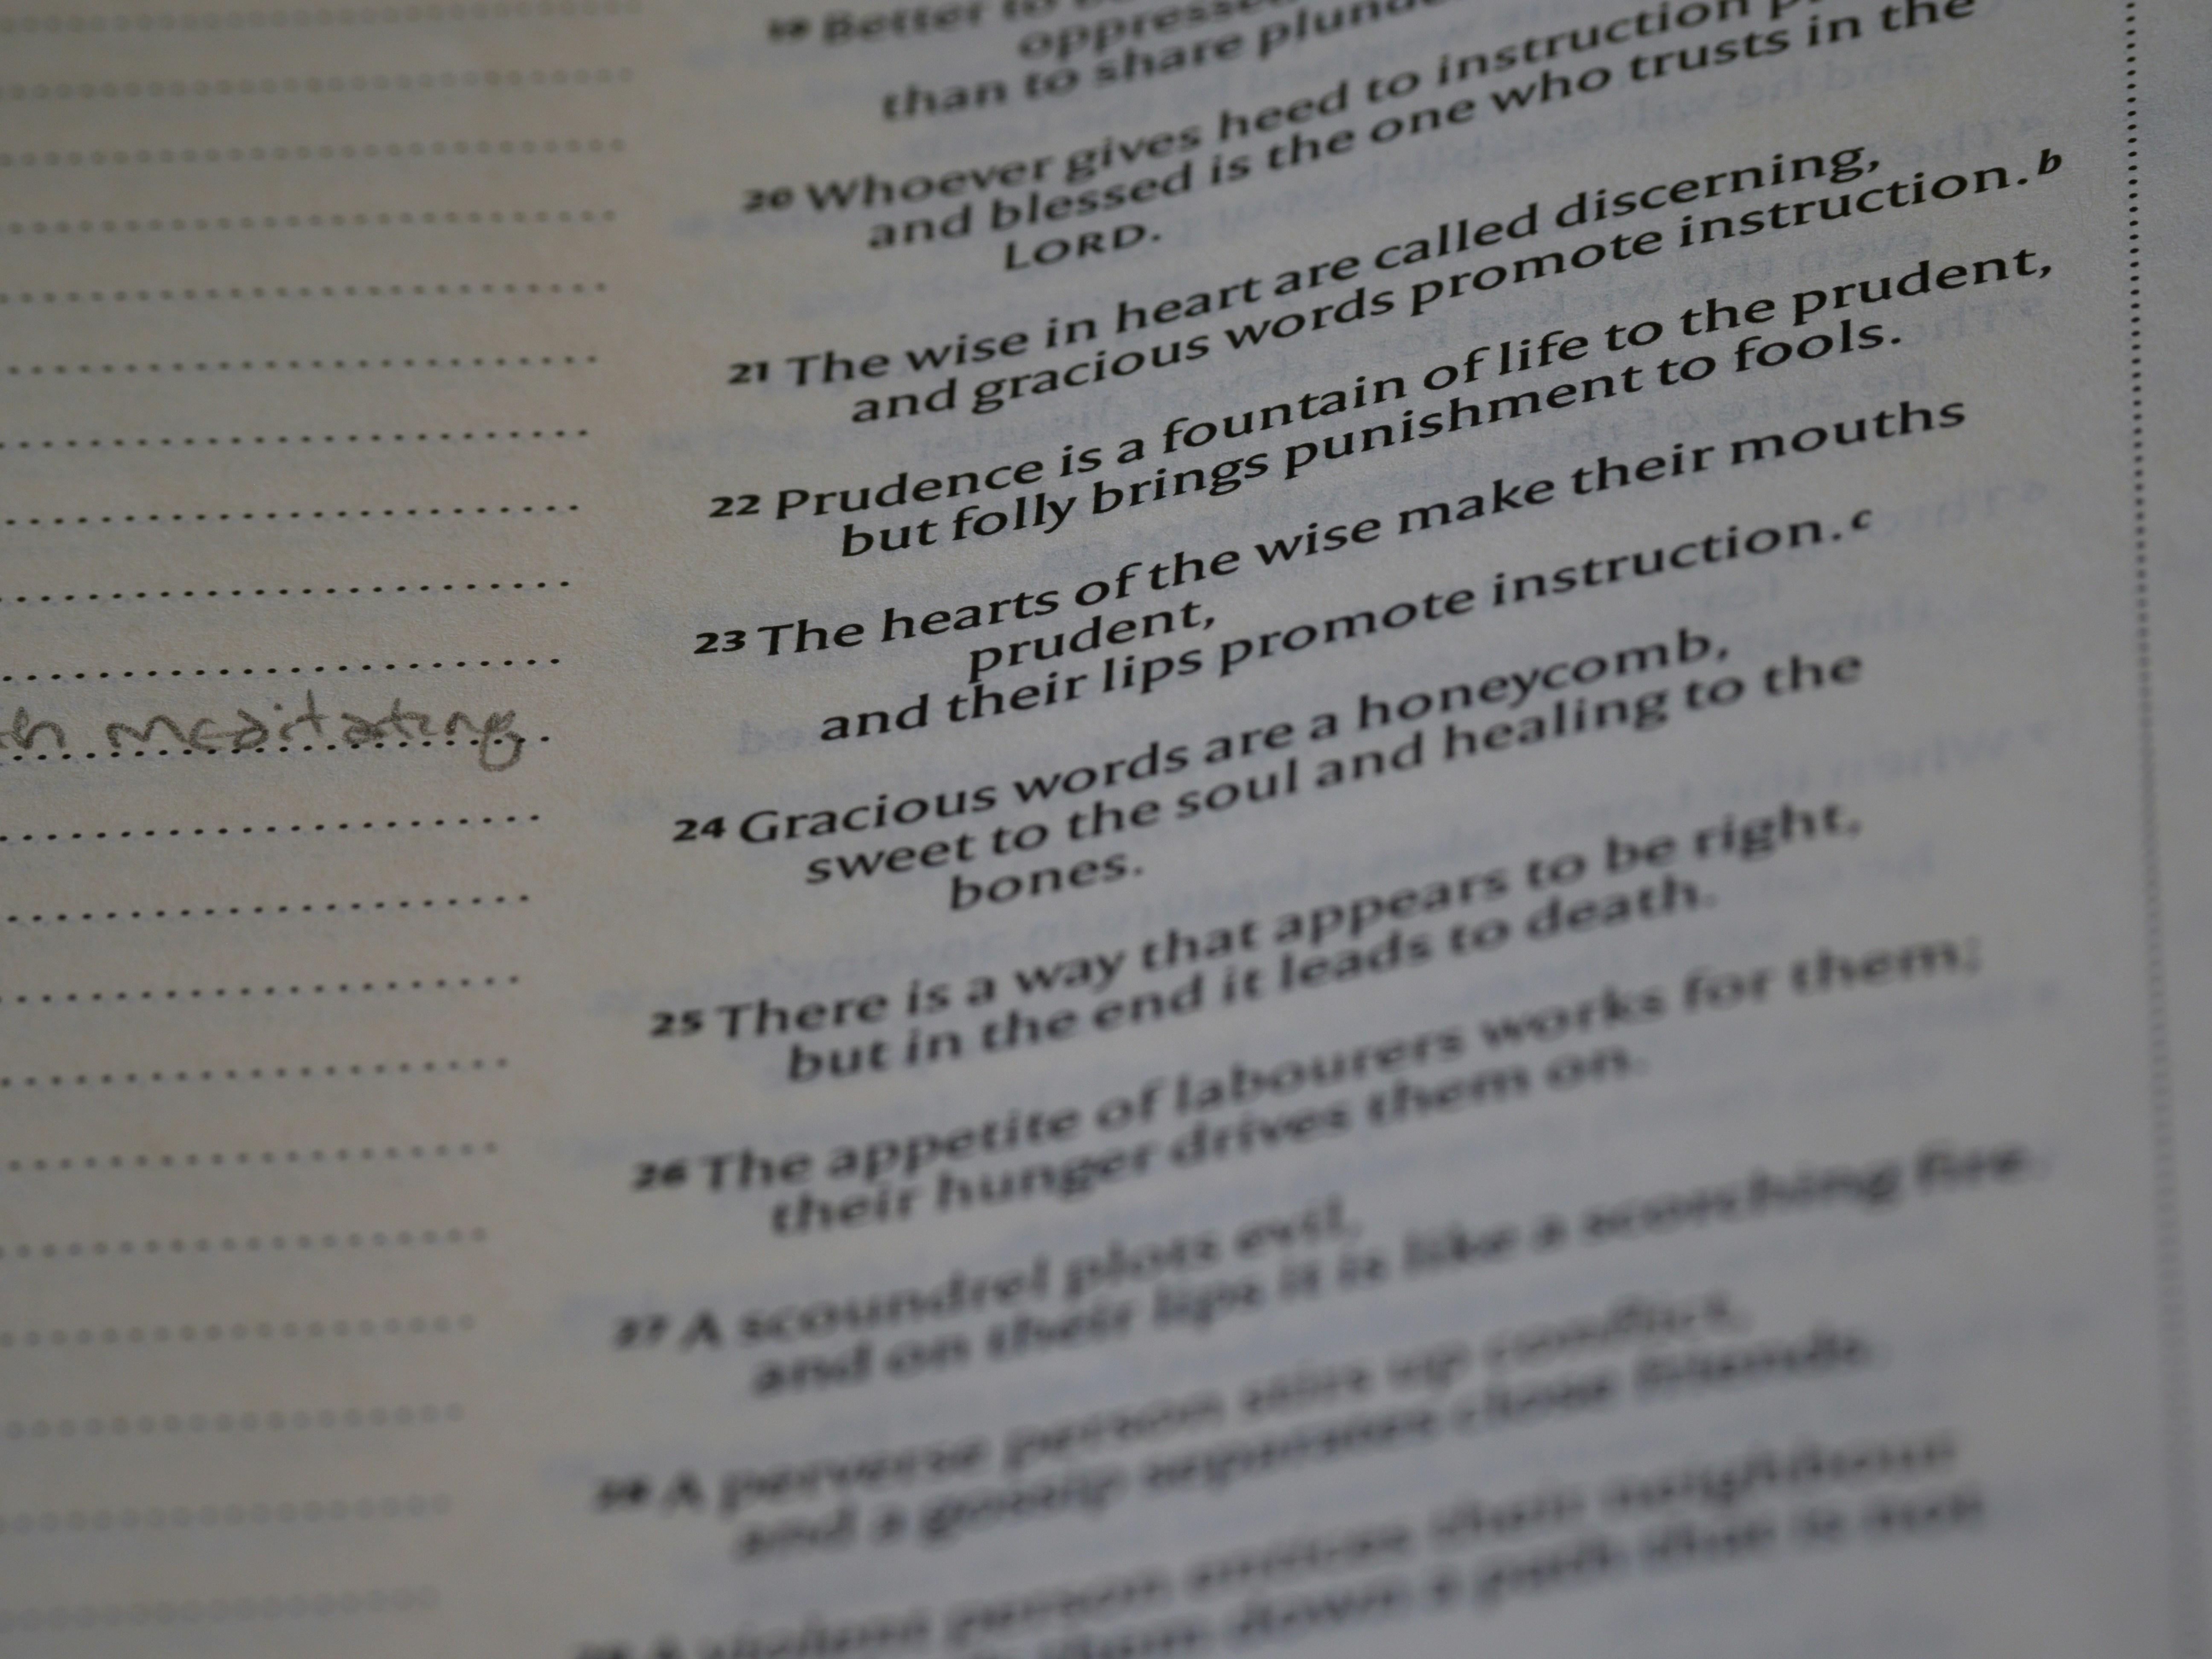 19 Better to
oppresse
than to share plund
20 Whoever gives heed to instruction p
and blessed is the one who trusts in the
LORD.
21 The wise in heart are called discerning,
and gracious words promote instruction. b
22 Prudence is a fountain of life to the prudent,
but folly brings punishment to fools.
23 The hearts of the wise make their mouths
prudent,
and their lips promote instruction. c
24 Gracious words are a honeycomb,
sweet to the soul and healing to the
bones.
25 There is a way that appears to be right,
but in the end it leads to death.
26 The appetite of labourers works for them;
their hunger drives them on.
27 A scoundrel plots evil,
and on their lips it is like a scorching fire.
28 A perverse person stirs up conflict,
and a gossip separates close friends.
A violent person entices their neighbour
them down a path that is not
meditating